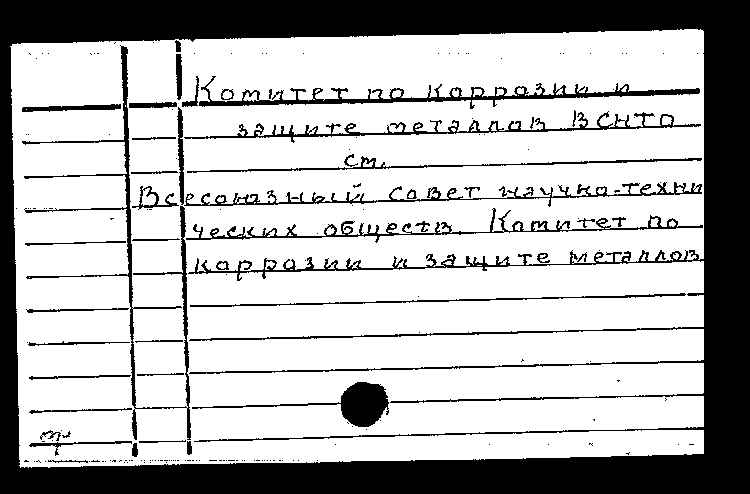 Комитет по коррозии и
защите металлов ВСНТО
см.
Всесоюзный совет научно-техни
ческих обществ. Комитет по
коррозии и защите металлов